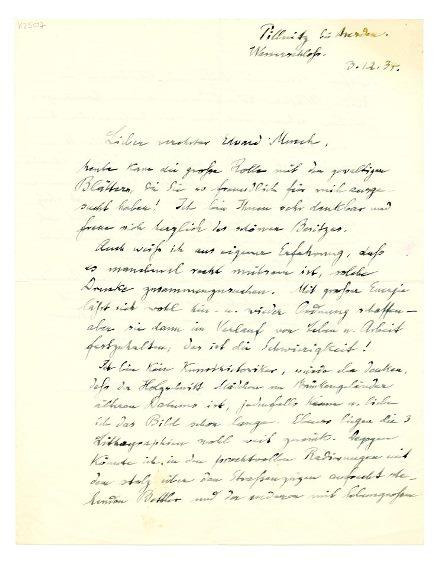 K2507
Pillnitz bei Dresden.
Wasserschloss.
3.12.35.
Lieber verehrter Edvard Munch,
heute kam die große Rolle mit den gewaltigen
Blättern, die Sie so freundlich für mich ausge-
sucht haben! Ich bin Ihnen sehr dankbar und
freue mich herzlich des schönen Besitzes.
Auch weiß ich aus eigener Erfahrung, daß
es manchmal recht mühsam ist, solche
Drucke zusammenzusuchen. Mit großer Energie
läßt sich wohl hin- u. wieder Ordnung schaffen –
aber sie dann im Verlauf von Leben u. Arbeit
festzuhalten, das ist die Schwierigkeit!
Ich bin kein Kunsthistoriker, würde da denken,
daß der Holzschnitt Mädchen am Brückengeländer
älteren Datums ist, jedenfalls kenne u. liebe
ich das Bild schon lange. Ebenso liegen die 3
Lithographien wohl weit zurück. Dagegen
könnte ich in den prachtvollen Radierungen mit
dem stolz über den Straßenzügen aufrecht ste-
henden Bettler und der anderen mit